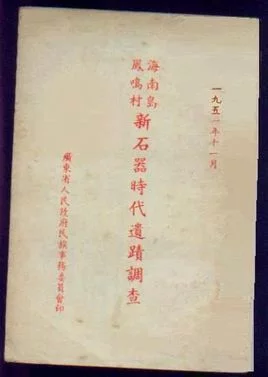 一九五一年十一月
海南島
鳳鳴村
新石器時代遺蹟調查
廣東省人民政府民族事務委員會印